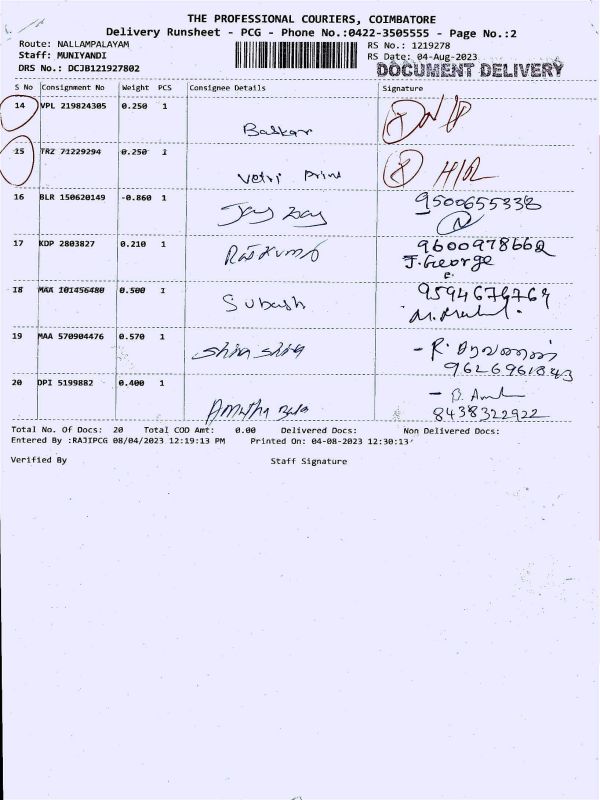 THE PROFESSIONAL COURIERS, COIMBATORE
Delivery Runsheet - PCG - Phone No.:0422-3505555 - Page No.:2
Route: NALLAMPALAYAM RS No.: 1219278
Staff: MUNIYANDI RS Date: 04-Aug-2023
DRS No.: DCJB121927802 DOCUMENT DELIVERY
S No Consignment No Weight PCS Consignee Details Signature
14 VPL 219824305 0.250 1
Baskar
15 TRZ 71229294 0.250 1
Vetri Print
16 BLR 150620149 -0.860 1 9500655338
Jay Bay
17 KDP 2803827 0.210 1 9600978662
Rajkumar J. George
18 MAA 101456480 0.500 1 9594676769
Subash
19 MAA 570904476 0.570 1
Shiva Shiva - R.
9626961843
20 DPI 5199882 0.400 1
Amutha Bala 8438322922
Total No. Of Docs: 20 Total COD Amt: 0.00 Delivered Docs: Non Delivered Docs:
Entered By :RAJIPCG 08/04/2023 12:19:13 PM Printed On: 04-08-2023 12:30:13
Verified By Staff Signature